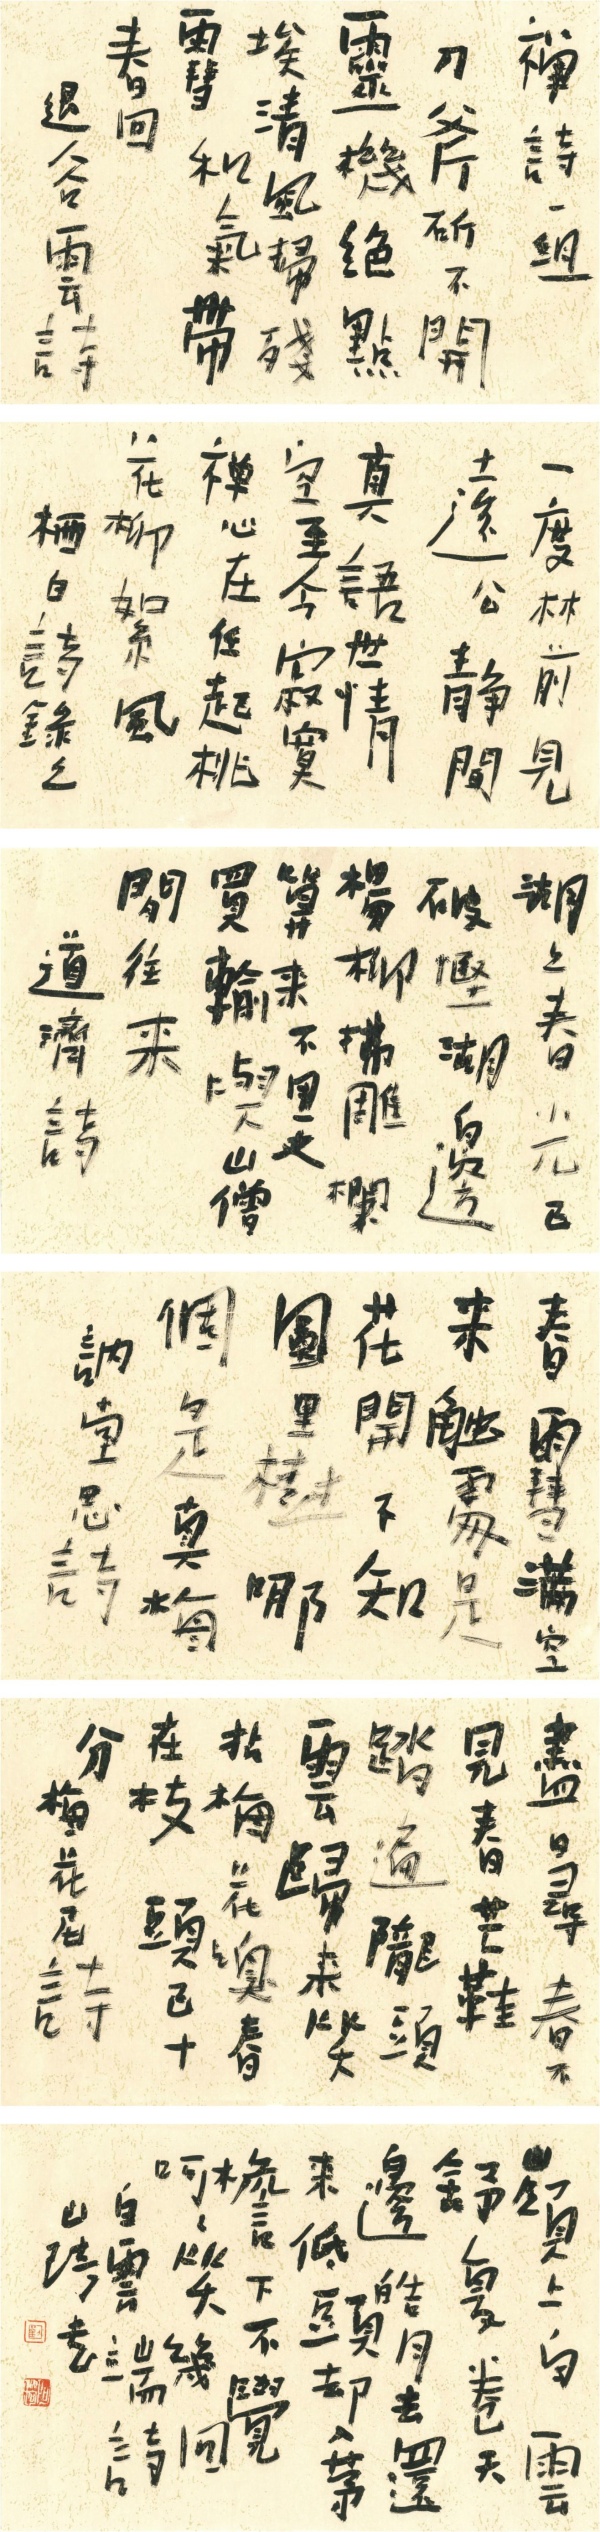 禅詩一組
刀斧斫不開
靈機絶點
埃清風歸殘
雪和氣帶
春回
退谷雲詩
一度林前見
遠公靜聞
真語世情
空至今寂寞
禅心在任起桃
花柳絮風
栖白詩錄之
湖上春光已
破慳湖邊
楊柳拂雕欄
算來不用
買輸與山僧
閑往来
道濟詩
春雪滿空
来觸處是
花開不知
園里樹哪
個是真梅
訥堂思詩
盡日尋春不
見春芒鞋
踏遍隴頭
雲歸来笑
拈梅花嗅春
在枝頭已十
分梅花尼詩
嶺上白雲
舒復卷天
邊皓月去還
来低頭却入茅
檐下不覺
呵呵笑幾回
白雲端詩